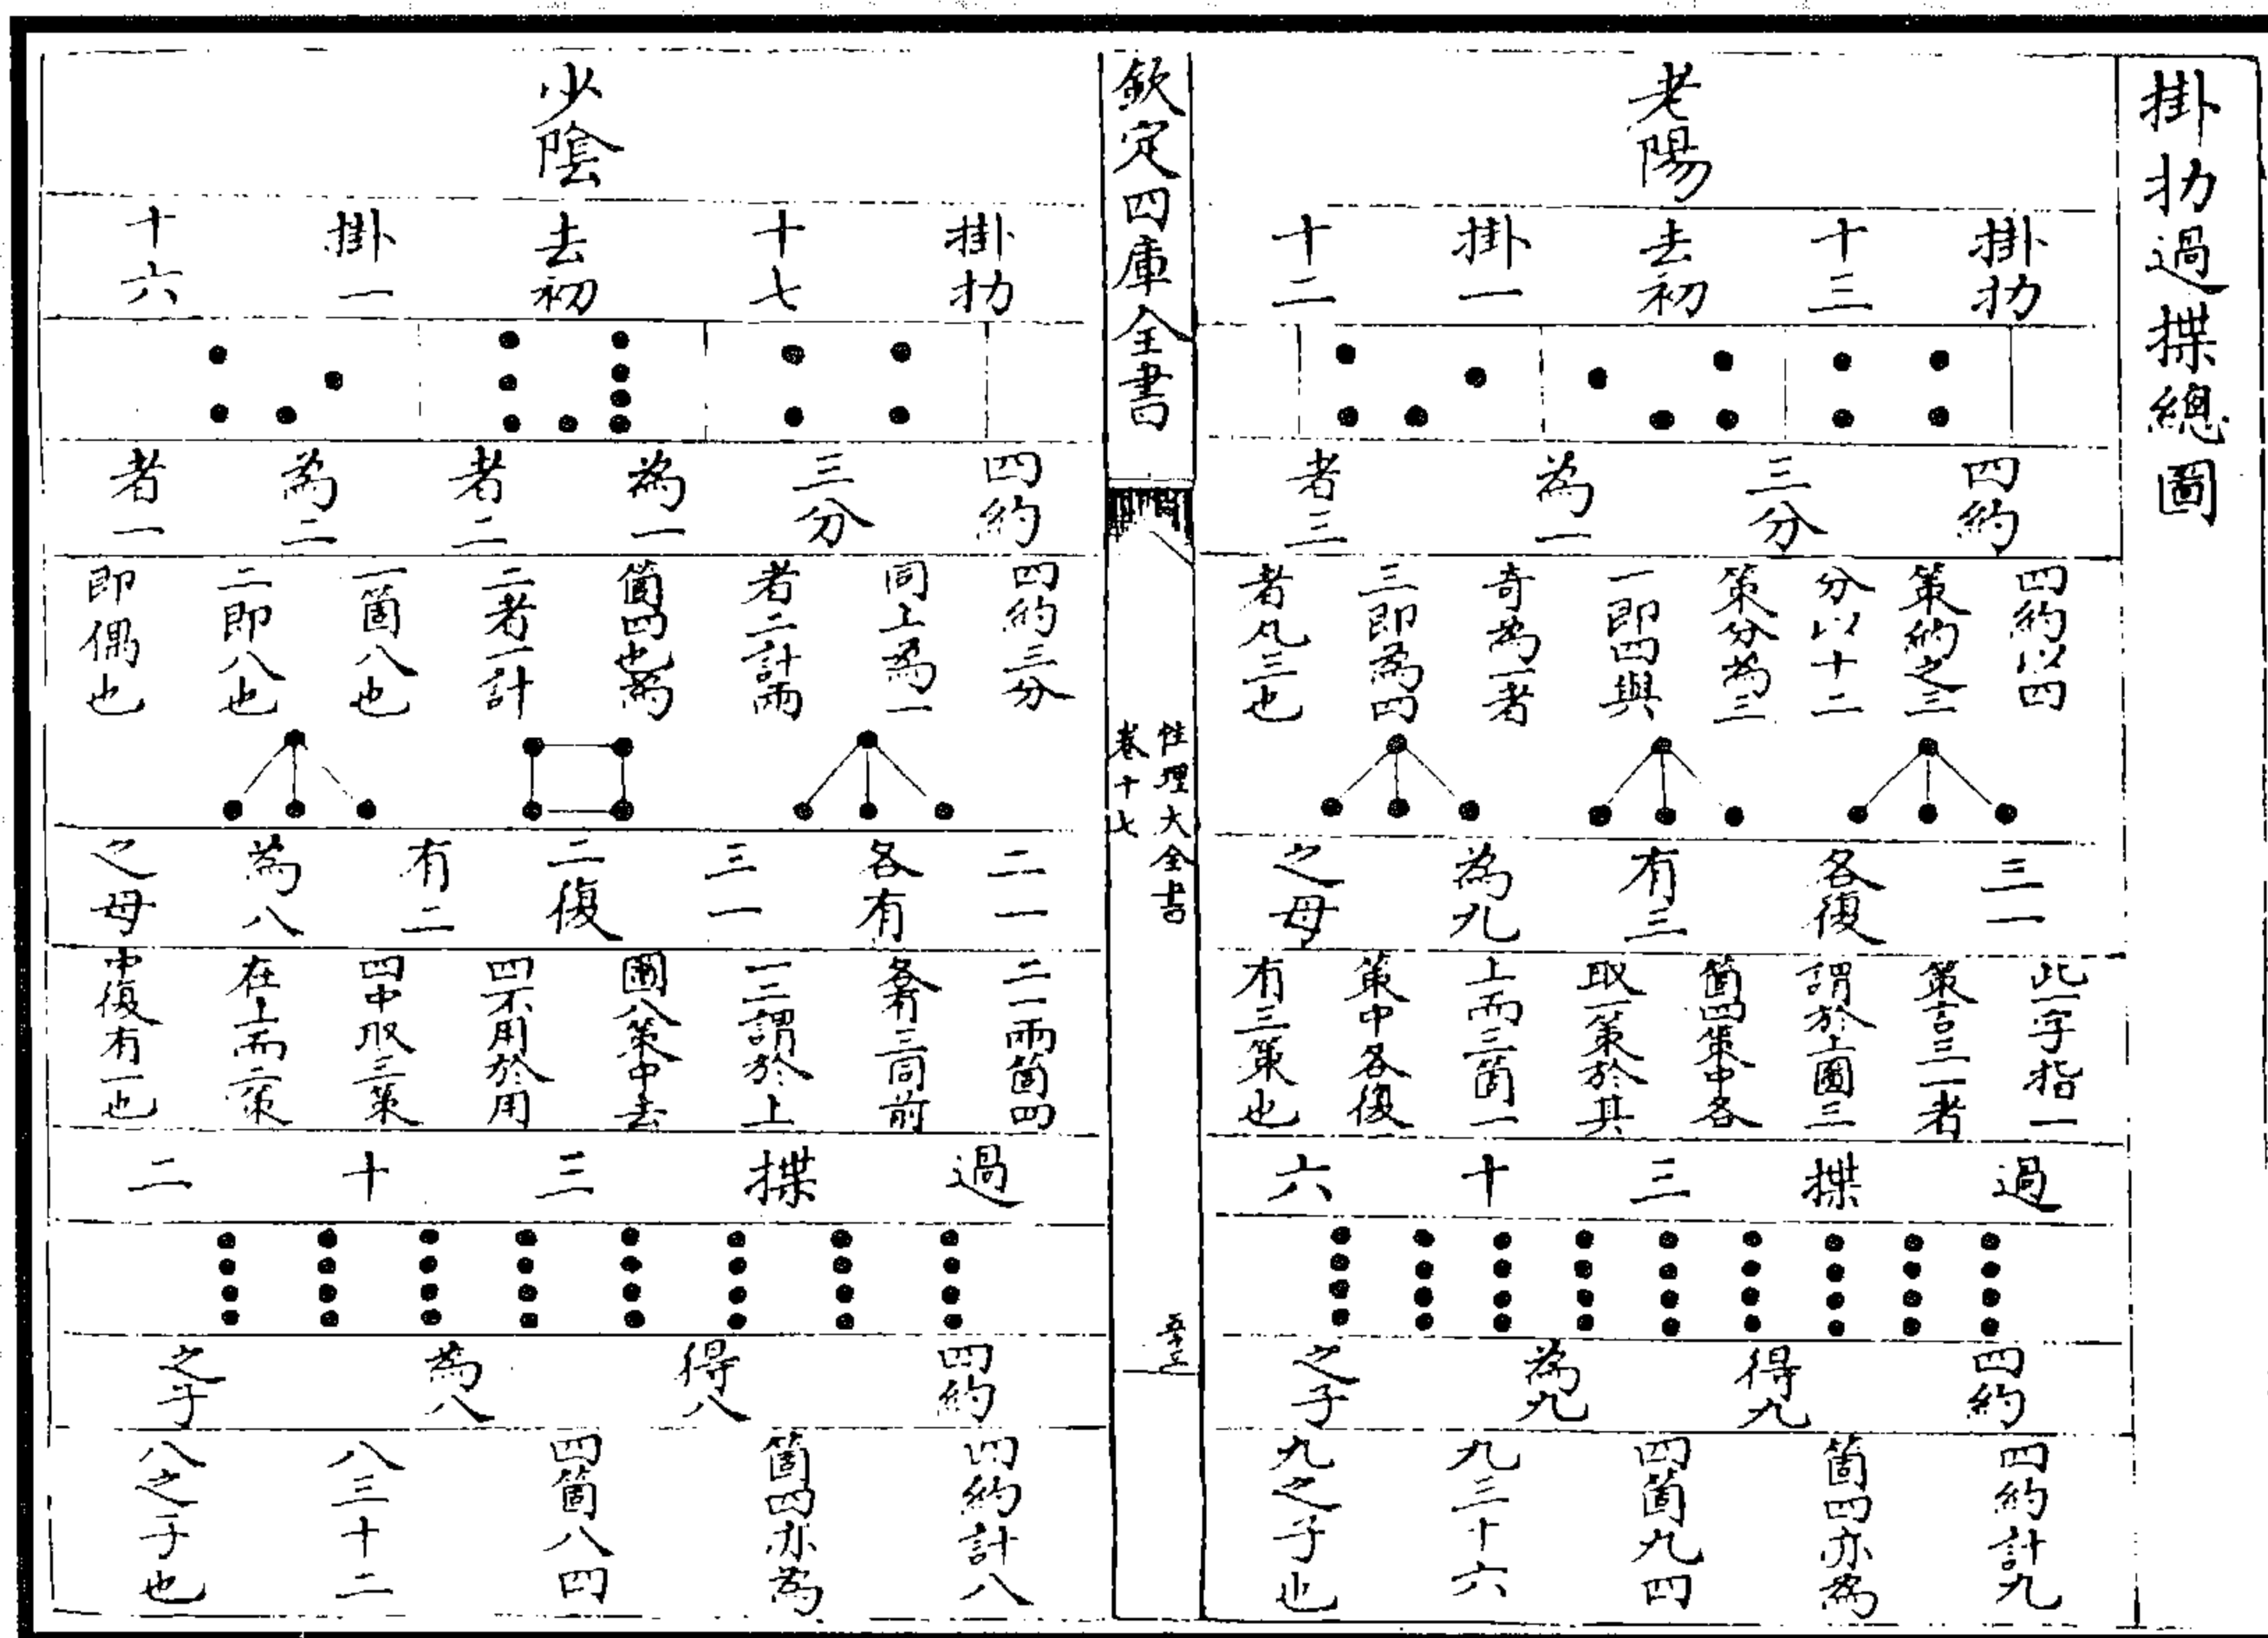 掛扐過揲總圖
老陽
掛扐
十三
去初
掛一
十二
四約
三分
為一
者三
四約以四
策約之三
分以十二
策分為三
一即四與
奇為一者
三即為四
者凡三也
三一
各復
有三
為九
之母
此一字指一
策言三一者
謂於上圖三
箇四策中各
取一策於其
上而三箇一
策中各復
有三策也
過揲三十六
四約
得九
為九
之子
四約計九
箇四亦為
四箇九四
九三十六
九之子也
欽定四庫全書
性理大全書
卷十七
少陰
掛扐
十七
去初
掛一
十六
四約
三分
為一
者二
為二
者一
四約三分
同上為一
者二計兩
箇四也為
二者一計
一箇八也
二即八也
即偶也
二一
各有
三一
二復
有二
為八
之母
二一兩箇四
各有三同前
一二謂於上
圖八策中去
四不用於用
四中取二策
在上而二策
中復有二也
過揲三十二
四約
得八
為八
之子
四約計八
箇四亦為
四箇八四
八三十二
八之子也